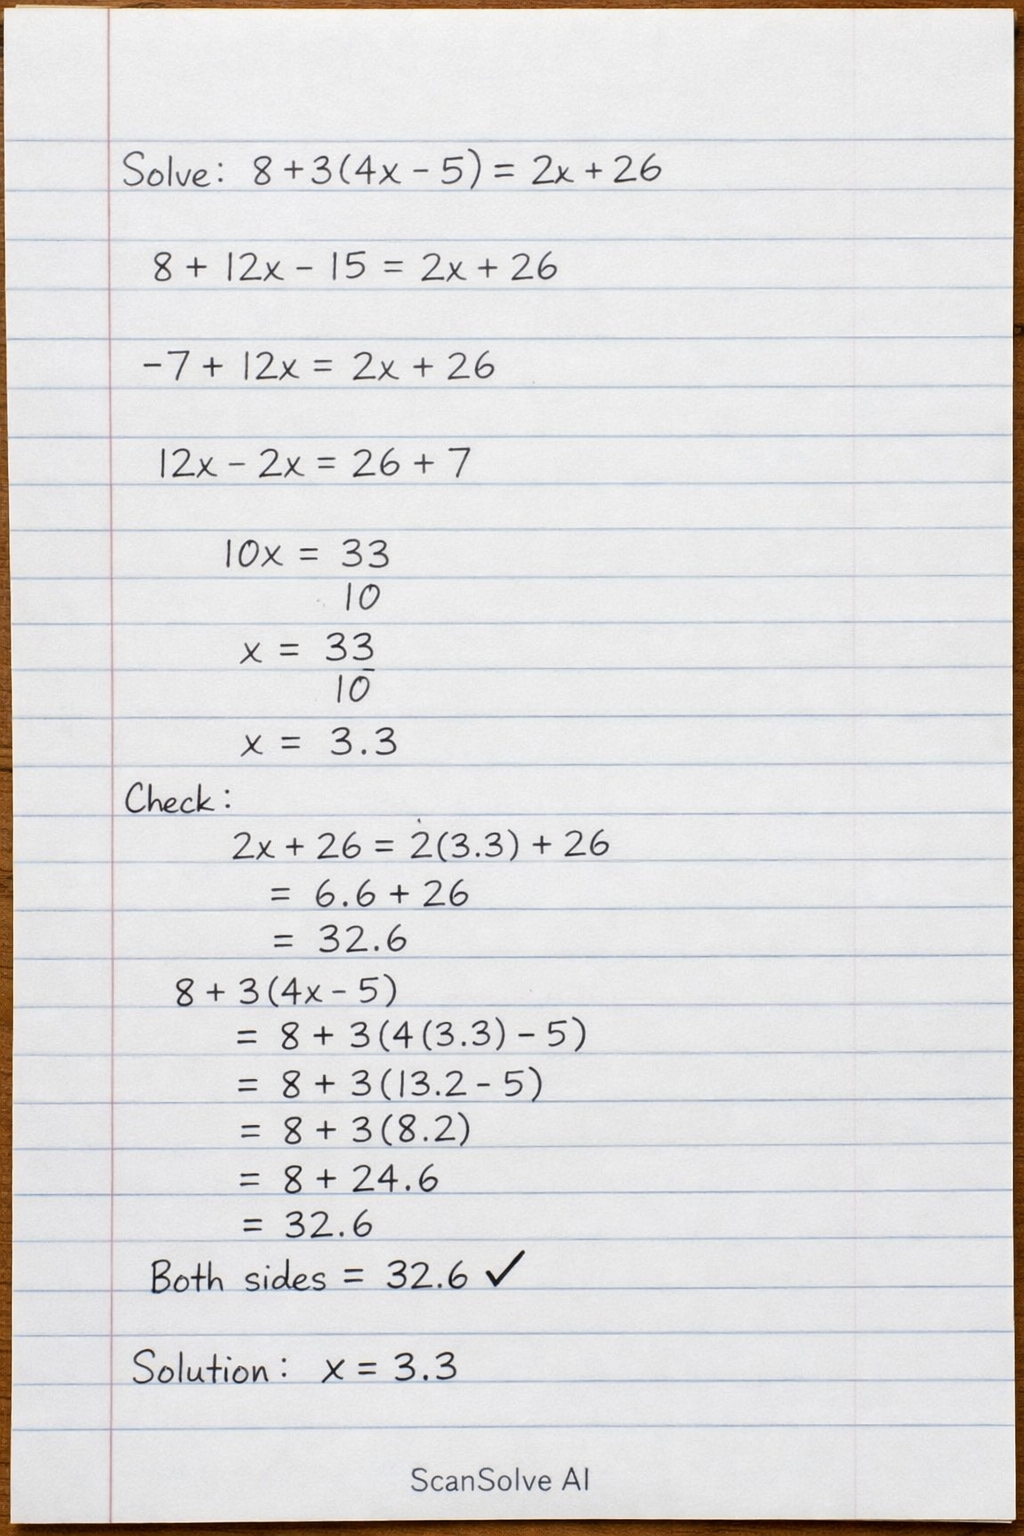 Solve: 8 + 3(4x - 5) = 2x + 26
8 + 12x - 15 = 2x + 26
-7 + 12x = 2x + 26
12x - 2x = 26 + 7
10x = 33
10
x = 33
10
x = 3.3
Check:
2x + 26 = 2(3.3) + 26
= 6.6 + 26
= 32.6
8 + 3(4x - 5)
= 8 + 3(4(3.3) - 5)
= 8 + 3(13.2 - 5)
= 8 + 3(8.2)
= 8 + 24.6
= 32.6
Both sides = 32.6 ✓
Solution: x = 3.3
ScanSolve AI